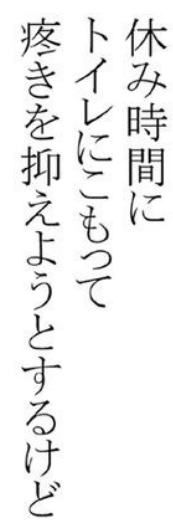 休み時間に
トイレにこもって
疼きを抑えようとするけど